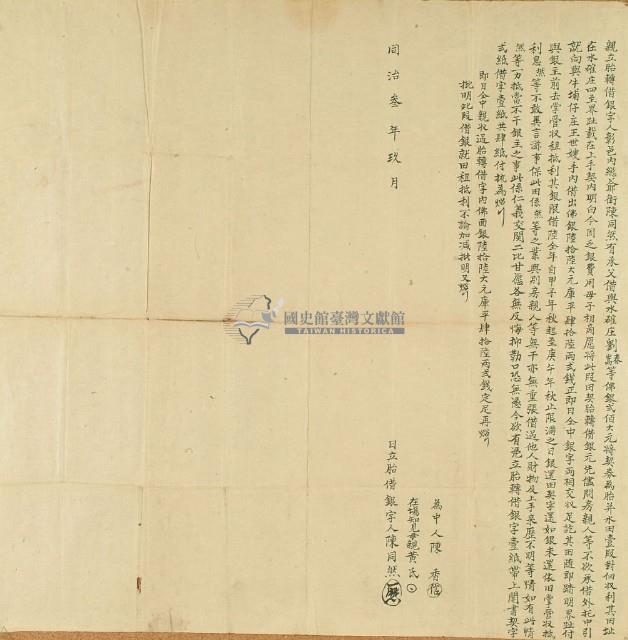 親立胎轉借銀字人彰邑內總爺街陳同然有承父借與水碓庄劉春嵩等佛銀弍佰大元將契券為胎并水田壹段對佃收利其田址
在水碓庄四至界址載在上手契內明白今因乏銀費用母子相商愿將此段田契胎轉借銀元先儘問房親人等不欲承借外托中引
就向與牛埔仔庄王世嫂手內借出佛銀陸拾陸大元庫平肆拾陸兩弍錢正即日仝中銀字兩相交收足訖其田隨即踏明界址付
與銀主前去掌管收租抵利其銀限借陸全年自甲子年秋起至庚午年秋止限滿之日銀還田契字還如銀未還依旧掌管收抵
利息然等不敢異言滋事保此田係然等之業與別房親人等無干亦無重張借過他人財物及上手來歷不明等情如有此情
然等一力抵當不干銀主之事此係仁義交關二比甘愿各無反悔抑勒口恐無憑今欲有憑立胎轉借銀字壹紙帶上鬮書契字
弍紙借字壹紙共肆紙付執為炤
即日仝中親收過胎轉借字內佛面銀陸拾陸大元庫平肆拾陸兩弍錢完足再炤
批明此段借銀就田租抵利不論加減批明又炤
為中人陳香
在場知見母親黃氏
同治叁年玖月 日立胎借銀字人陳同然
國史館臺灣文獻館
TAIWAN HISTORICA